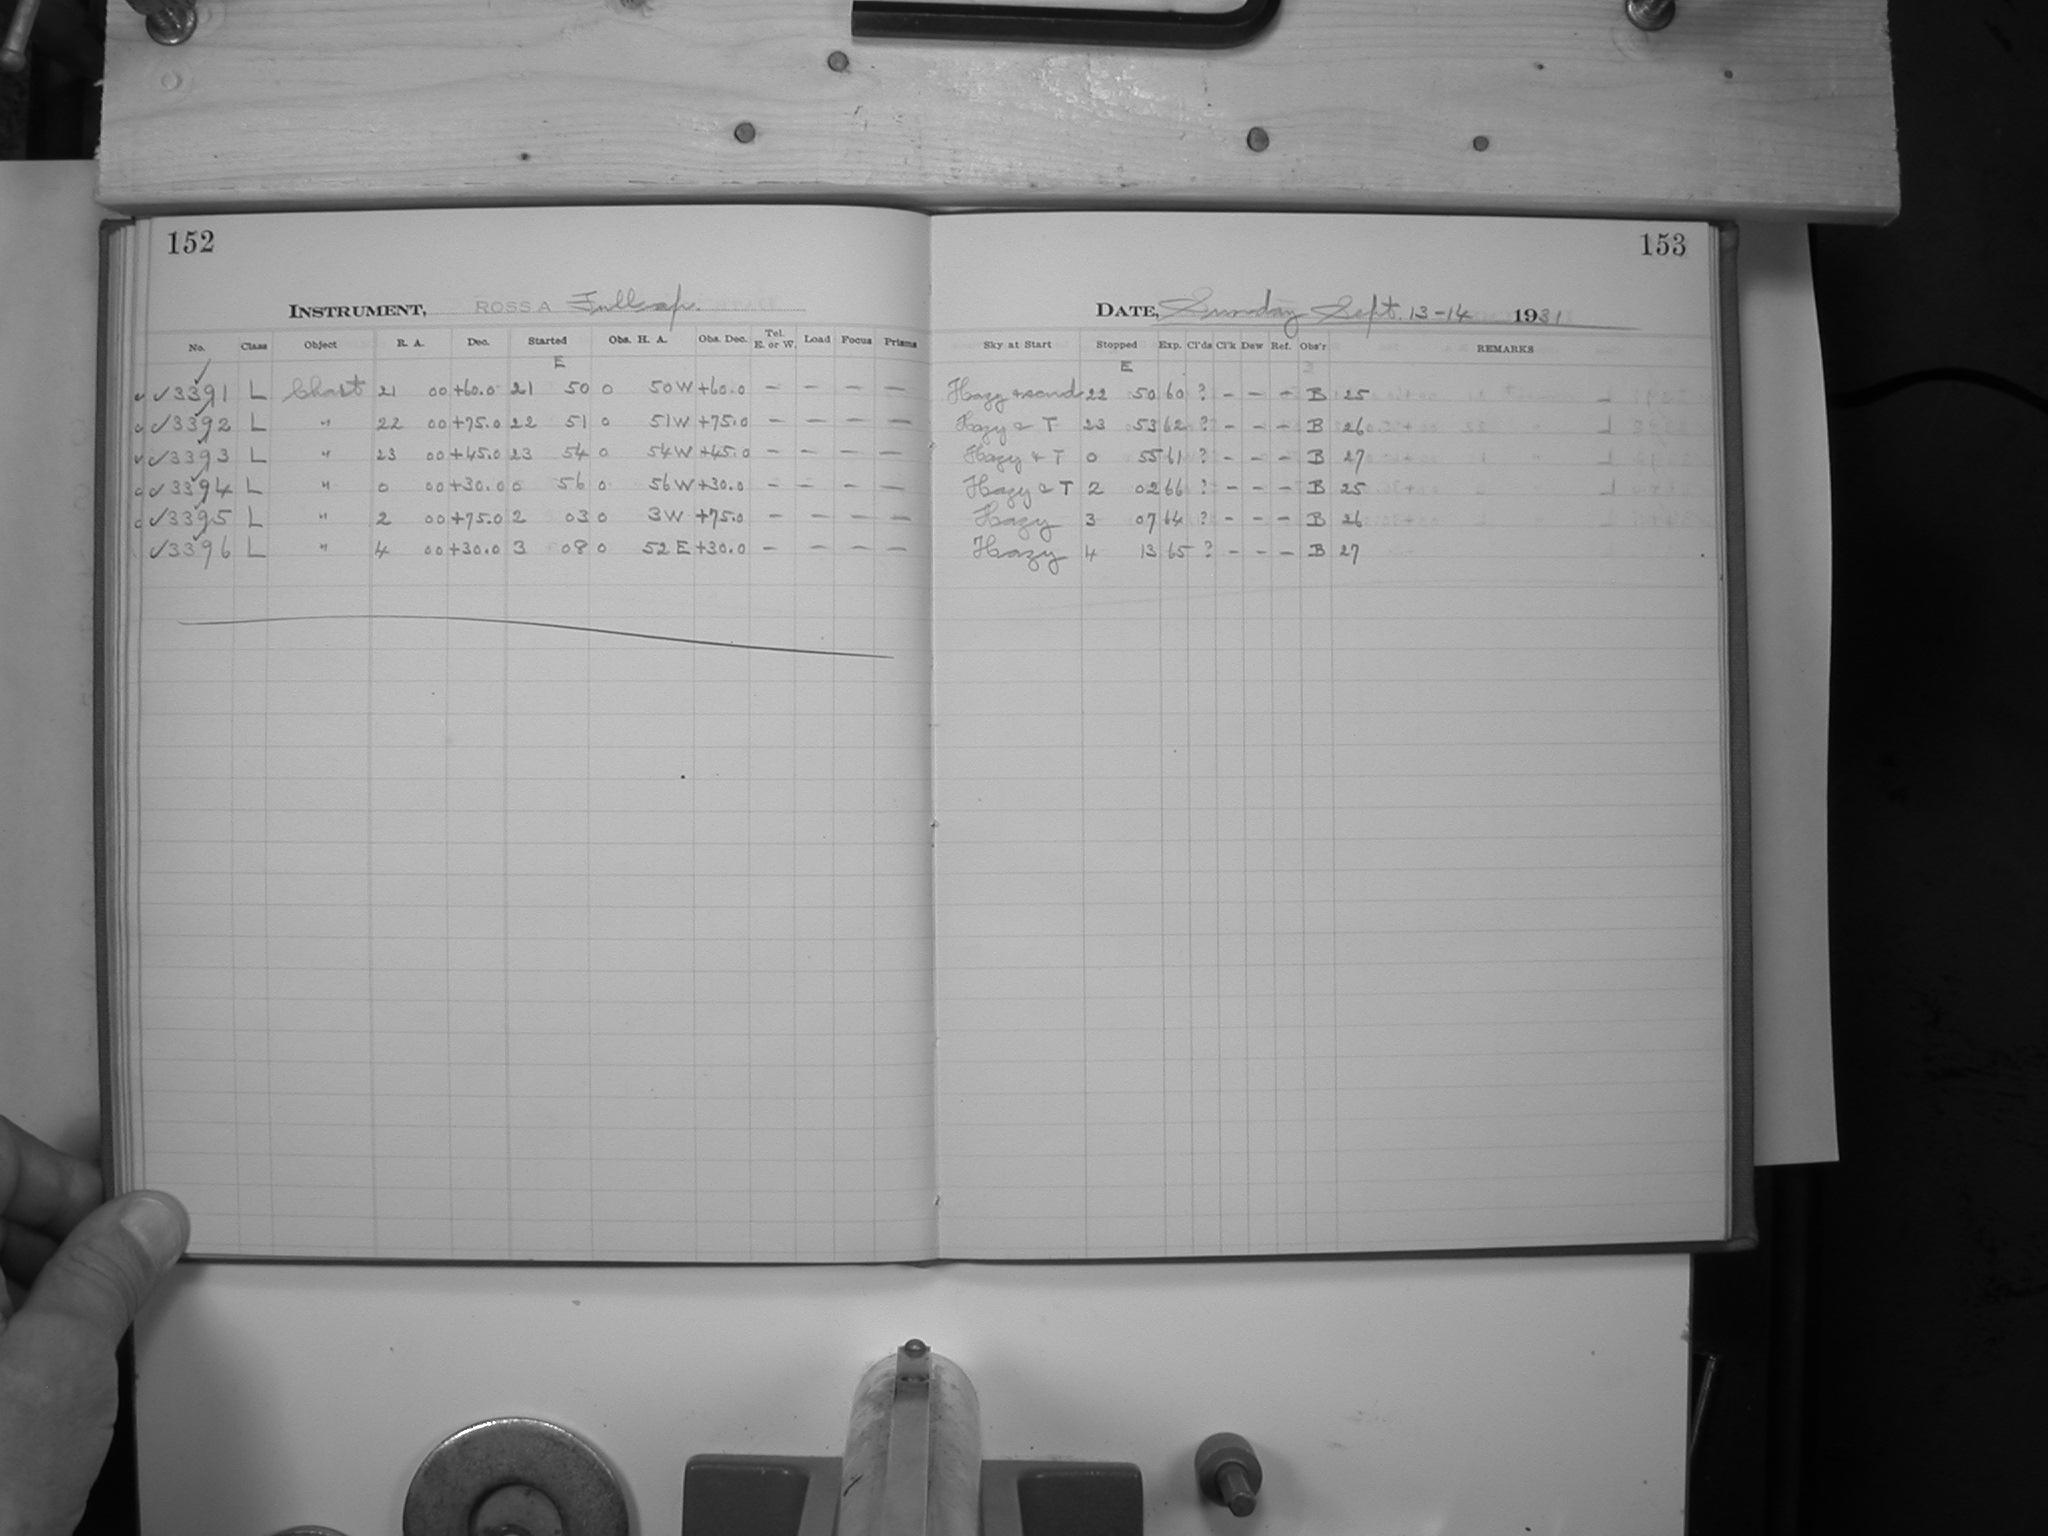 152
INSTRUMENT, ROSS A Full cap.
No. Class Object R. A. Dec. Started Obs. H. A. Obs. Dec. Tel. E. or W. Load Focus Prisms
E
✓3391 L Chart 21 00 +60.0 21 50 0 50 W +60.0 – – – –
✓3392 L " 22 00 +75.0 22 51 0 51 W +75.0 – – – –
✓3393 L " 23 00 +45.0 23 54 0 54 W +45.0 – – – –
✓3394 L " 0 00 +30.0 0 56 0 56 W +30.0 – – – –
✓3395 L " 2 00 +75.0 2 03 0 3 W +75.0 – – – –
✓3396 L " 4 00 +30.0 3 08 0 52 E +30.0 – – – –
153
DATE, Sunday Sept. 13-14 1931
Sky at Start Stopped Exp. Cl'ds Cl'k Dew Ref. Obs'r REMARKS
E
Hazy 22 50 60 ? – – – B 25
Hazy & T 23 53 62 ? – – – B 26
Hazy & T 0 55 61 ? – – – B 27
Hazy & T 2 02 66 ? – – – B 25
Hazy 3 07 64 ? – – – B 26
Hazy 4 13 65 ? – – – B 27